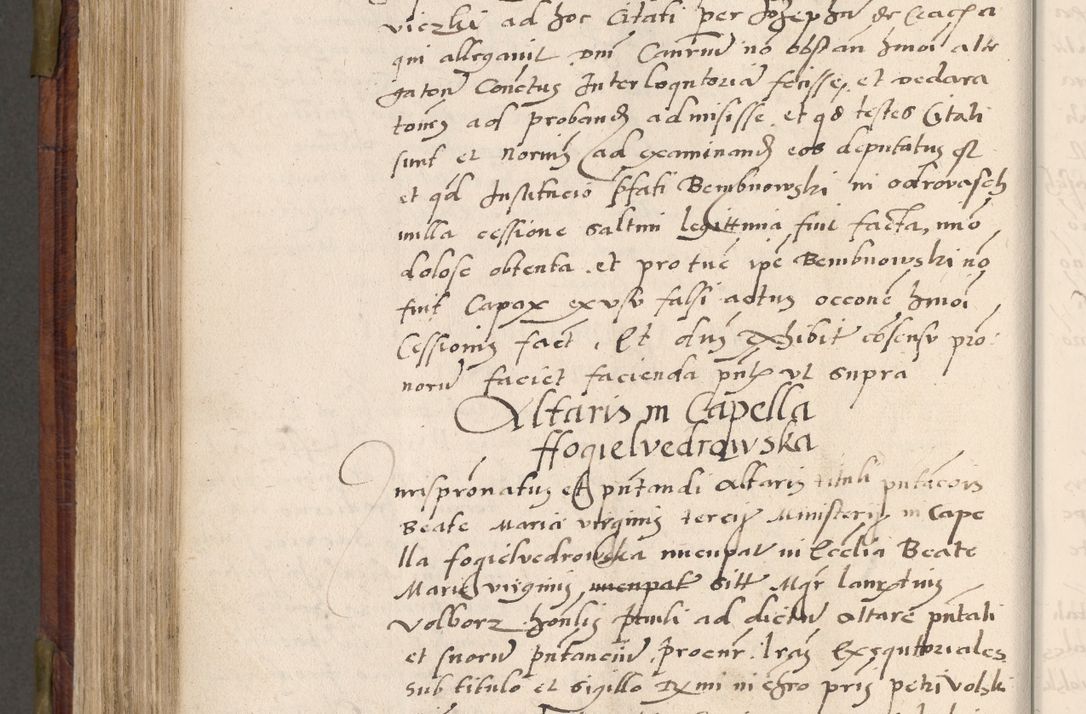 viczki ad hoc Citati per Joseph de CeachA
qui allegavit dni no obstan hmoi alle
gatone Interloqutoria fecisse, et dedara
tomes ad proband admisisse et qd testes Citati
sunt et Norius ad examinand eos deputatus est
et qd Institucio pfati Bembnowski in odrovasch
nulla cessione saltim legittima fuit facta, imo
dolose obtenta et pro tuc ipe Bembnowski no
fuit Capax ex usu falsi actus occone hmoi
Cessionis fact. Et dus Exhibit cosensu pro
noru faciet facienda pntz ut supra
Altaris in Capella
ffogielvedrowska
Iurispronatus est pntandi Altaris tituli pntacois
Beate Marie virginis tercij Ministerij in Cape
lla fogielvedrowska nucupat in Ecclia Beate
Marie virginis, nucupat sitt Mgr laurentius
Volborz honlis pauli ad dictu Altare pntati
et suoru pntanciu procur. lras Exequtoriales
sub titulo et sigillo Rxmi in chro pris petri volski